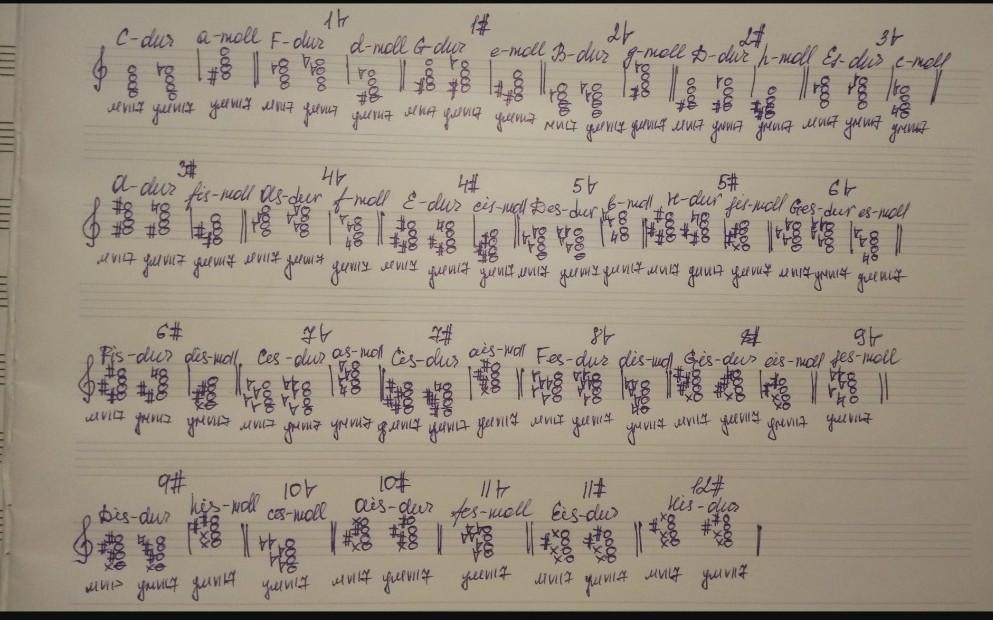 1♭ 1# 2♭ 2# 3♭
C-dur a-moll F-dur d-moll G-dur e-moll B-dur g-moll D-dur h-moll Es-dur c-moll
мVII7 умVII7 умVII7 мVII7 умVII7 умVII7 мVII7 умVII7 умVII7 мVII7 умVII7 умVII7 мVII7 умVII7 умVII7 мVII7 умVII7 умVII7
3# 4♭ 4# 5♭ 5# 6♭
A-dur fis-moll As-dur f-moll E-dur cis-moll Des-dur b-moll H-dur gis-moll Ges-dur es-moll
мVII7 умVII7 умVII7 мVII7 умVII7 умVII7 мVII7 умVII7 умVII7 мVII7 умVII7 умVII7 мVII7 умVII7 умVII7 мVII7 умVII7 умVII7
6# 7♭ 7# 8♭ 9♭
Fis-dur dis-moll Ces-dur as-moll Cis-dur ais-moll Fes-dur Gis-dur eis-moll
мVII7 умVII7 умVII7 мVII7 умVII7 умVII7 умVII7 умVII7 мVII7 умVII7 умVII7 мVII7 умVII7 умVII7 умVII7
9# 10♭ 10# 11♭ 11# 12#
Dis-dur his-moll ces-moll Ais-dur fes-moll Eis-dur His-dur
мVII7 умVII7 умVII7 умVII7 мVII7 умVII7 умVII7 мVII7 умVII7 мVII7 умVII7